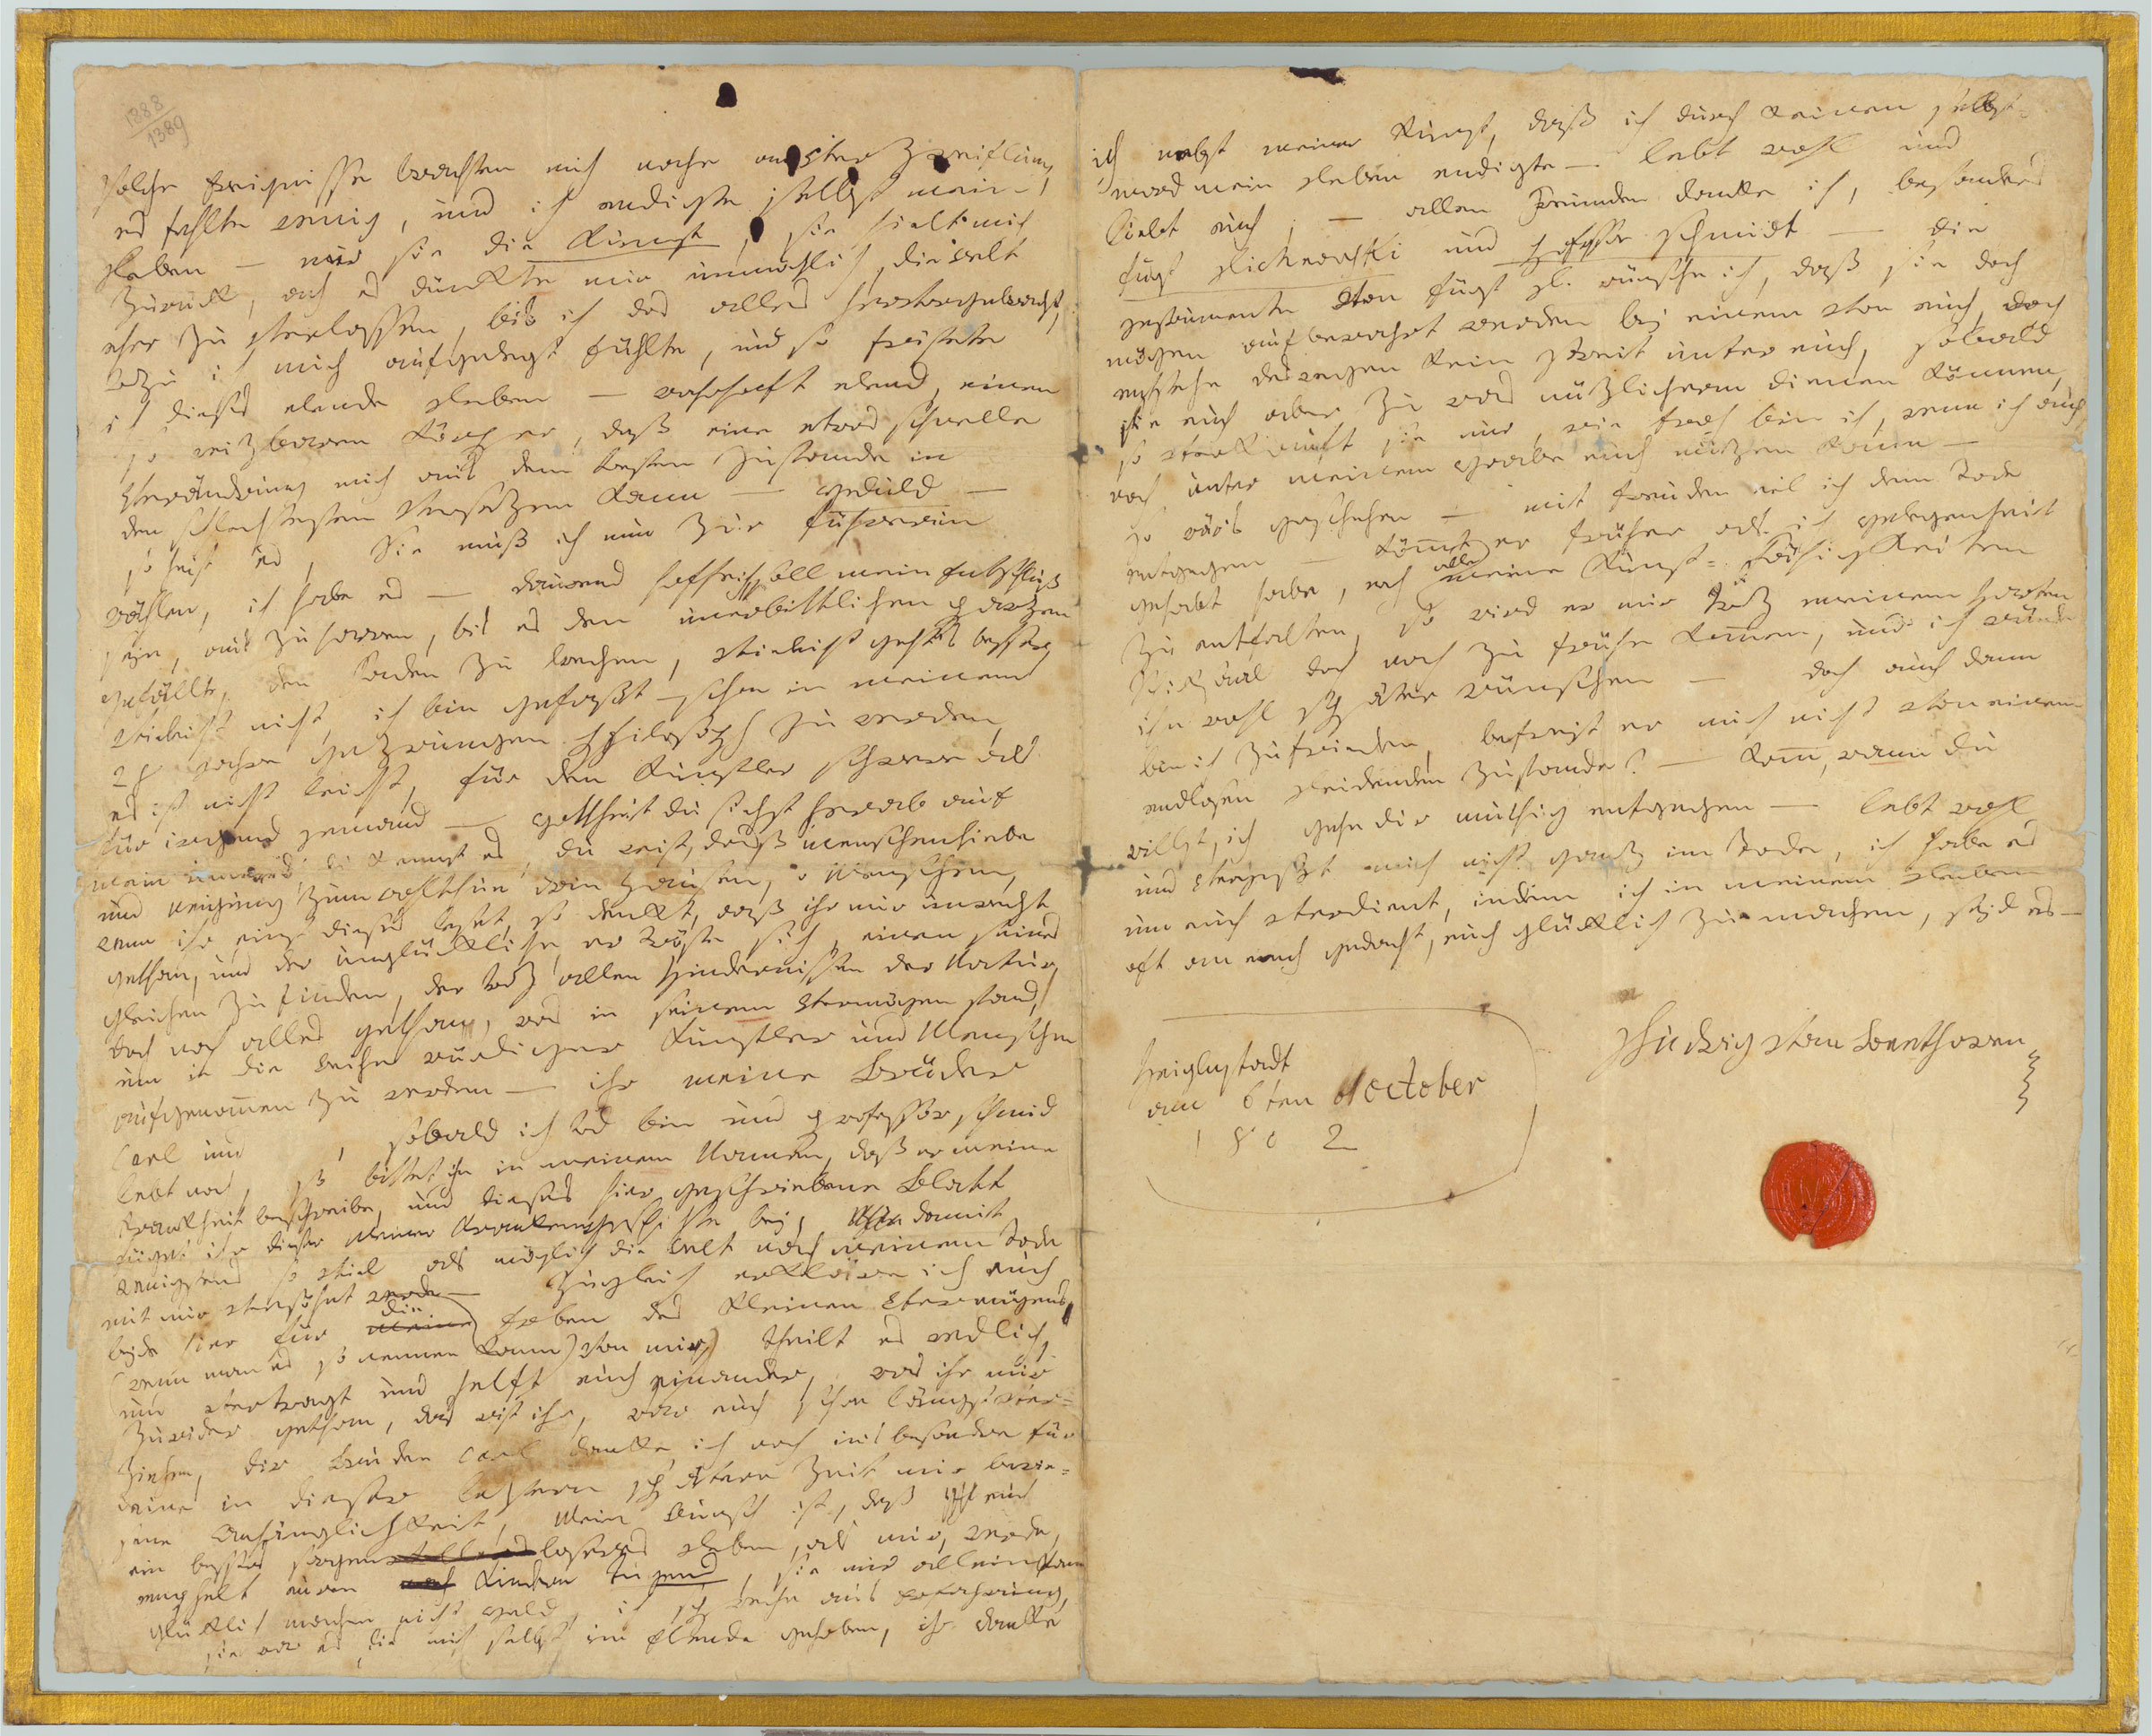 1388
1389
solche Ereignisse brachten mich nahe an Verzweiflung,
es fehlte wenig, und ich endigte selbst mein
Leben — nur sie die Kunst, sie hielt mich
zurück, ach es dünkte mir unmöglich, die Welt
eher zu verlassen, bis ich das alles hervorgebracht,
wozu ich mich aufgelegt fühlte, und so fristete
ich dieses elende Leben — wahrhaft elend, einen
so reizbaren Körper, daß eine etwas schnelle
Verändrung mich aus dem besten Zustande in
den schlechtesten versezen kann — Geduld —
so heist es, Sie muß ich nun zur führerin
wählen, ich habe es — daurend hoffe ich, soll mein Entschluß
seyn, aus zu harren, bis es den unerbittlichen parzen
gefällt, den Faden zu brechen, vieleicht geht's besser,
vieleicht nicht, ich bin gefaßt — schon in meinem
28 jahre gezwungen philosoph zu werden,
es ist nicht leicht, für den Künstler schwerer als
für irgend jemand — gottheit du siehst herab auf
mein inneres, du kennst es, du weist, daß menschenliebe
und neigung zum wohlthun drin Hausen, o Menschen,
wenn ihr einst dieses leset, so denkt, daß ihr mir unrecht
gethan, und der unglückliche, er tröste sich, einen seines
gleichen zu finden, der troz allen Hindernissen der Natur,
doch noch alles gethan, was in seinem Vermögen stand,
um in die Reihe würdiger Künstler und Menschen
aufgenommen zu werden — ihr meine Brüder
Carl und , sobald ich tod bin und professor schmid
lebt noch, so bittet ihn in meinem Namen, daß er meine
Krankheit beschreibe, und dieses hier geschriebene Blatt
füget ihr dieser meiner Krankengeschichte bey, damit
wenigstens so viel als möglich die Welt nach meinem Tode
mit mir versöhnt werde — Zugleich erkläre ich euch
beyde hier für meine die Erben des kleinen Vermögens,
(wenn man es so nennen kann) von mir, theilt es redlich,
und vertragt und helft euch einander, was ihr mir
zuwider gethan, das wist ihr, war euch schon längst ver=
ziehen, dir Bruder Carl danke ich noch ins besondre für
deine in dieser leztern spätern Zeit mir bewie=
sene Anhänglichkeit, Mein Wunsch ist, daß euch
ein bessers sorgenloseres Leben, als mir, werde,
emphelt euren nach Kindern Tugend, sie nur allein kann
glücklich machen, nicht Geld, ich spreche aus Erfahrung,
sie war es, die mich selbst im Elende gehoben, ihr danke
ich nebst meiner Kunst, daß ich durch keinen selbst=
mord mein Leben endigte — lebt wohl und
liebt euch; — allen Freunden danke ich, besonders
fürst Lichnovski und professor schmidt — die
Instrumente von fürst L. wünsche ich, daß sie doch
mögen aufbewahrt werden bey einem von euch, doch
entstehe deswegen kein Streit unter euch, sobald
sie euch aber zu was nüzlicherm dienen können,
so verkauft sie nur, wie froh bin ich, wenn ich auch
noch unter meinem Grabe euch nüzen kann —
so wärs geschehen — mit freuden eil ich dem Tode
entgegen — kömmt er früher als ich Gelegenheit
gehabt habe, noch alle meine Kunst=Fähigkeiten
zu entfalten, so wird er mir troz meinem Harten
Schicksaal doch noch zu frühe kommen, und ich würde
ihn wohl später wünschen — doch auch dann
bin ich zufrieden, befreyt er mich nicht von einem
endlosen Leidenden Zustande? — Komm, wann du
willst, ich gehe dir muthig entgegen — lebt wohl
und Vergeßt mich nicht ganz im Tode, ich habe es
um euch verdient, indem ich in meinem Leben
oft an euch gedacht, euch glücklich zu machen, seyd es —
Ludwig van Beethoven
Heiglnstadt
am 6ten October
1802